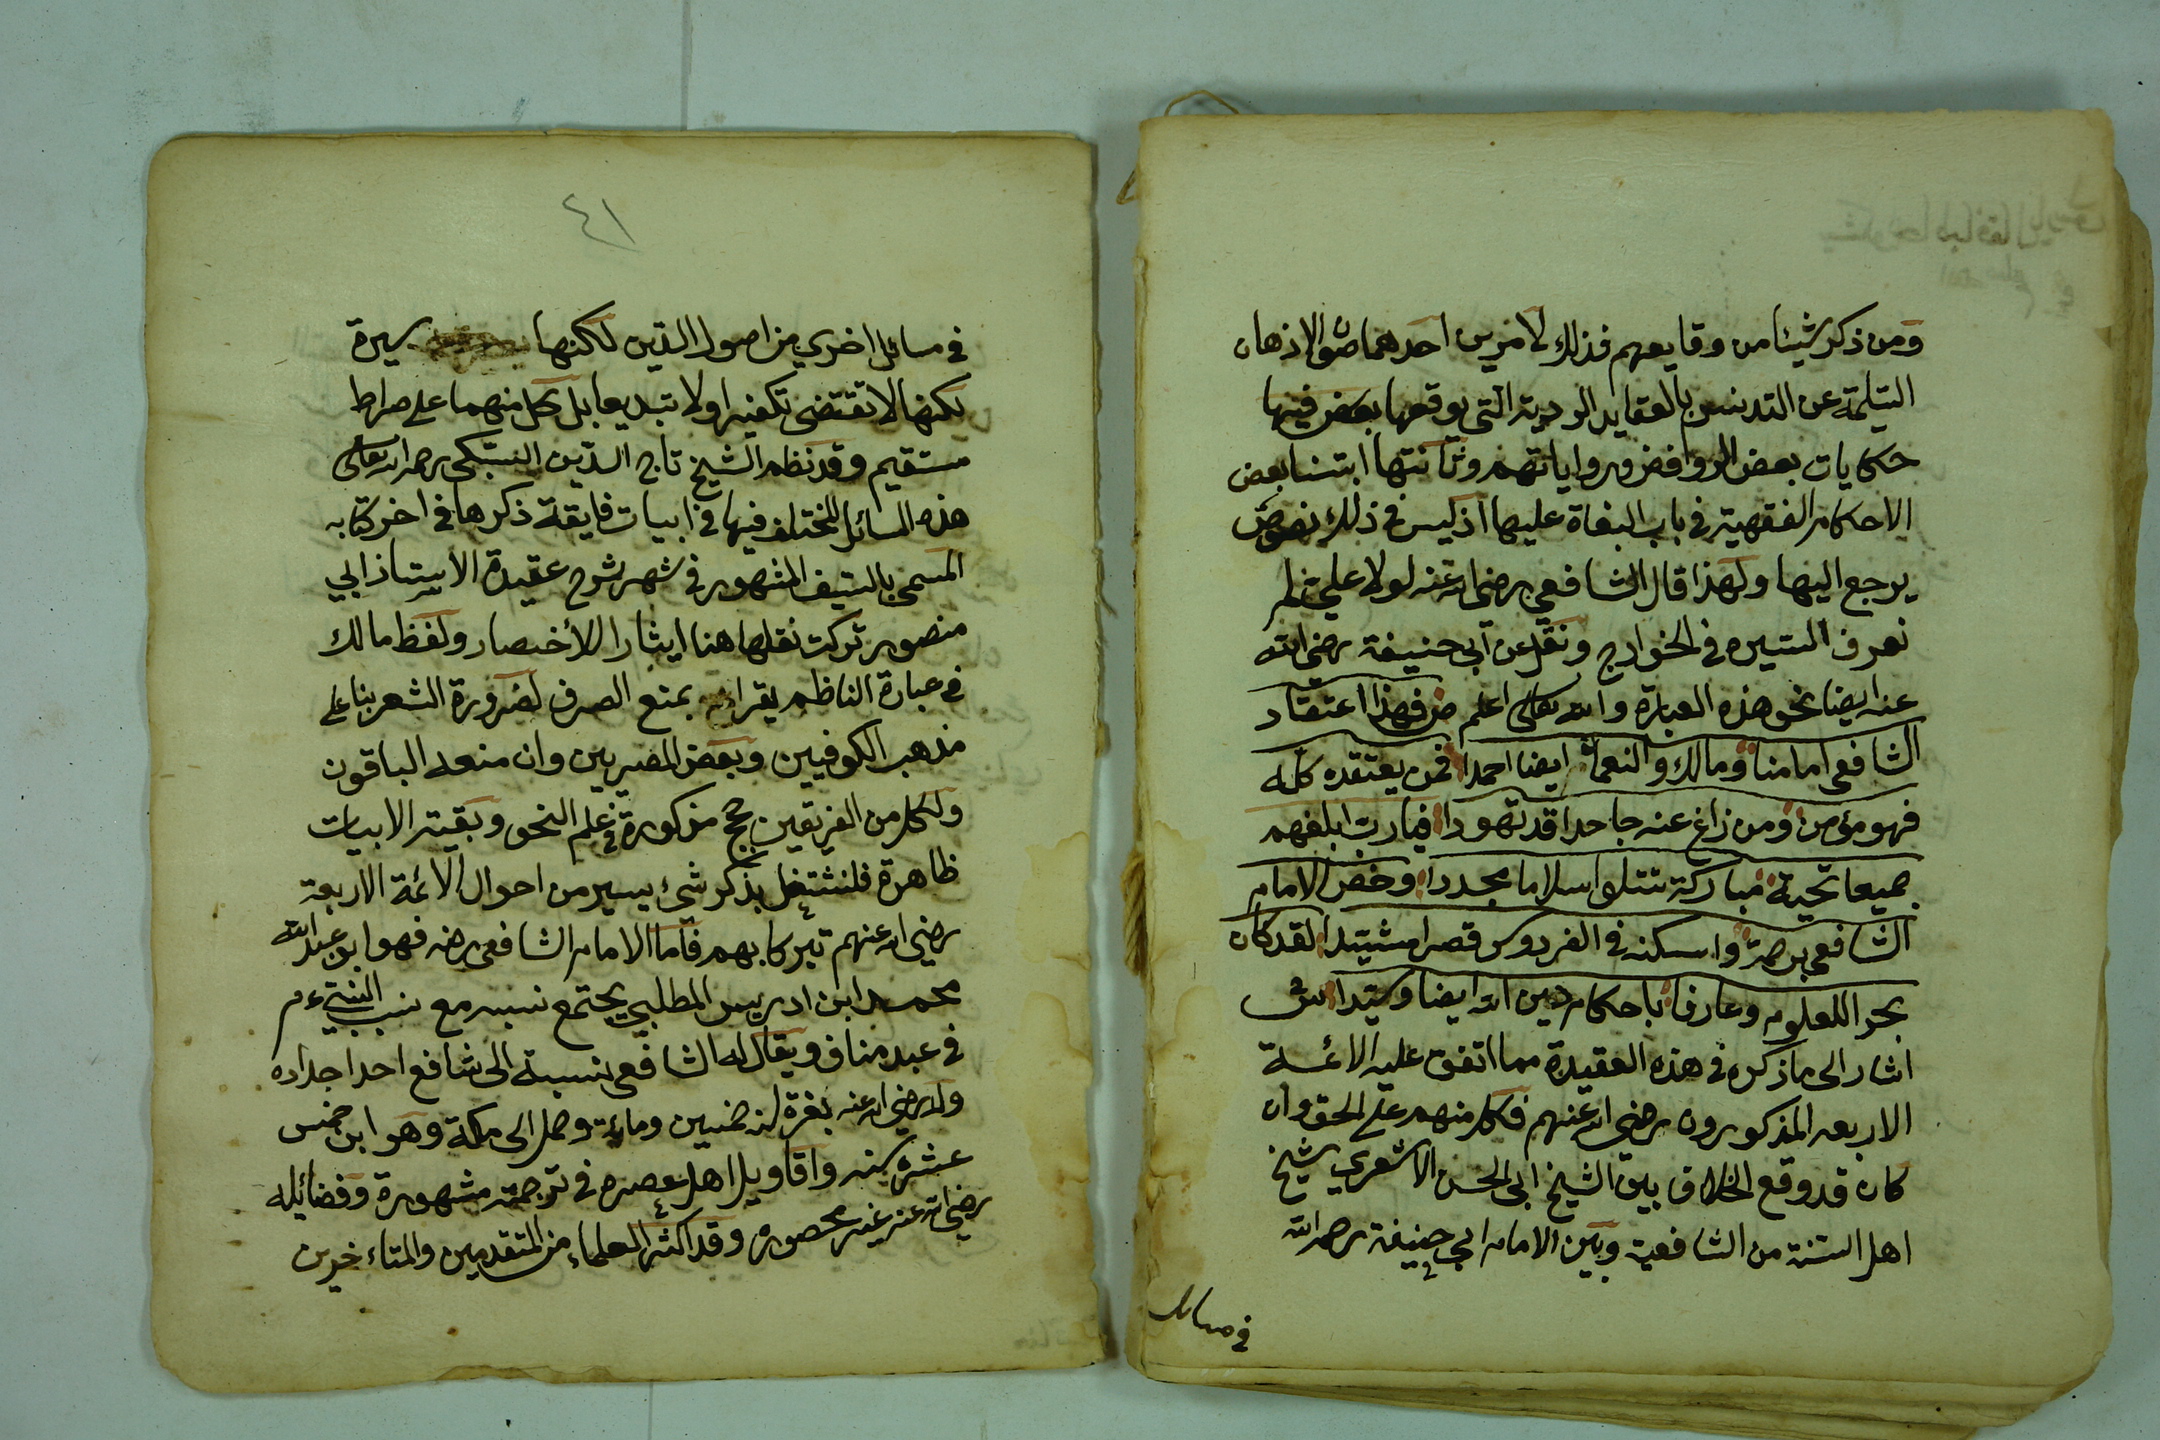 ومن ذكر شيئا من وقايعهم فذلك لامرين احدهما صون الاذهان
السليمة عن التدنيس بالعقايد الردية التي يوقعها بعض فيها
حكايات بعض الروافض ورواياتهم وثانيتها ابتنا بعض
الاحكام الفقهية في باب البغاة عليها اذ ليس في ذلك نصوص
يرجع اليها ولهذا قال الشافعي رضي الله عنه لولا علي لم
نعرف السيره في الخوارج ونقل عن ابي حنيفة رضي الله
عنه ايضا نحو هذه العبارة والله تعالى اعلم ص فهذا اعتقاد
الشافعي امامنا ومالك والنعمان ايضا احمدا فمن يعتقده كله
فهو مؤمن ومن زاغ عنه جاحدا قد تهودا فيارب ابلغهم
جميعا تحية مباركة تتلو اسلاما مجددا وخص الامام
الشافعي برحمة واسكنه في الفردوس قصرا مشيدا لقد كان
بحرا للعلوم وعارفا باحكام دين الله ايضا وسيدا ش
اشار الى ما ذكره في هذه العقيدة مما اتفق عليه الائمة
الاربعه المذكورون رضي الله عنهم فكل منهم على الحق وان
كان قد وقع الخلاف بين الشيخ ابي الحسن الاشعري شيخ
اهل السنة من الشافعية وبين الامام ابي حنيفة رحمه الله
في مسائل
٤١
في مسائل اخري من اصول الدين لكنها يسيرة
لكنها لا تقتضي تكفيرا ولا تبديعا بل كل منهما على صراط
مستقيم وقد نظم الشيخ تاج الدين السبكي رحمه الله تعالى
هذه المسائل المختلف فيها في ابيات فايقة ذكرها في اخر كتابه
المسمى بالسيف المشهور في شرح عقيدة الاستاذ ابي
منصور تركت نقلها هنا ايثارا للأختصار ولفظ مالك
في عبارة الناظم يقرا بمنع الصرف لضرورة الشعر بنا على
مذهب الكوفيين وبعض المصريين وان منعه الباقون
ولكل من الفريقين حجج مذكورة في علم النحو وبقية الابيات
ظاهرة فلنشتغل بذكر شئ يسير من احوال الائمة الاربعة
رضي الله عنهم تبركا بهم فأما الامام الشافعي رضه فهو ابو عبد الله
محمد ابن ادريس المطلبي يجتمع نسبه مع نسب النبي ءم
في عبد مناف ويقال له الشافعي نسبة الى شافع احد اجداده
ولد رضي الله عنه بغزة لنه خمسين ومائة وحمل الى مكة وهو ابن خمس
عشرة سنه واقاويل اهل عصره في ترجمته مشهورة وفضائله
رضي الله عنه غير محصوره وقد اكثر العلماء من المتقدمين والمتاءخرين